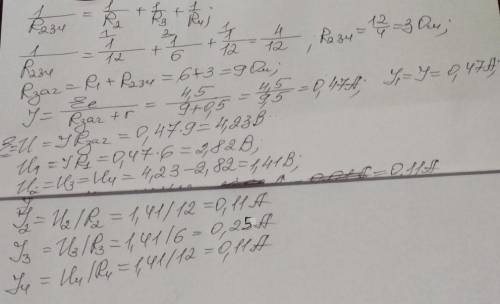 1/R₂₃₄ = 1/R₂ + 1/R₃ + 1/R₄;
1/R₂₃₄ = 1/12 + 1/6 + 1/12 = 4/12, R₂₃₄ = 12/4 = 3 Ом;
Rзаг = R₁ + R₂₃₄ = 6+3 = 9 Ом;
I = ℰ/(Rзаг + r) = 4,5/(9+0,5) = 4,5/9,5 = 0,47A; I₁ = I = 0,47A.
U = I Rзаг = 0,47·9 = 4,23В.
U₁ = I R₁ = 0,47·6 = 2,82В;
U₂ = U₃ = U₄ = 4,23 − 2,82 = 1,41В;
= 0,11A
I₂ = U₂/R₂ = 1,41/12 = 0,11A
I₃ = U₃/R₃ = 1,41/6 = 0,25A
I₄ = U₄/R₄ = 1,41/12 = 0,11A